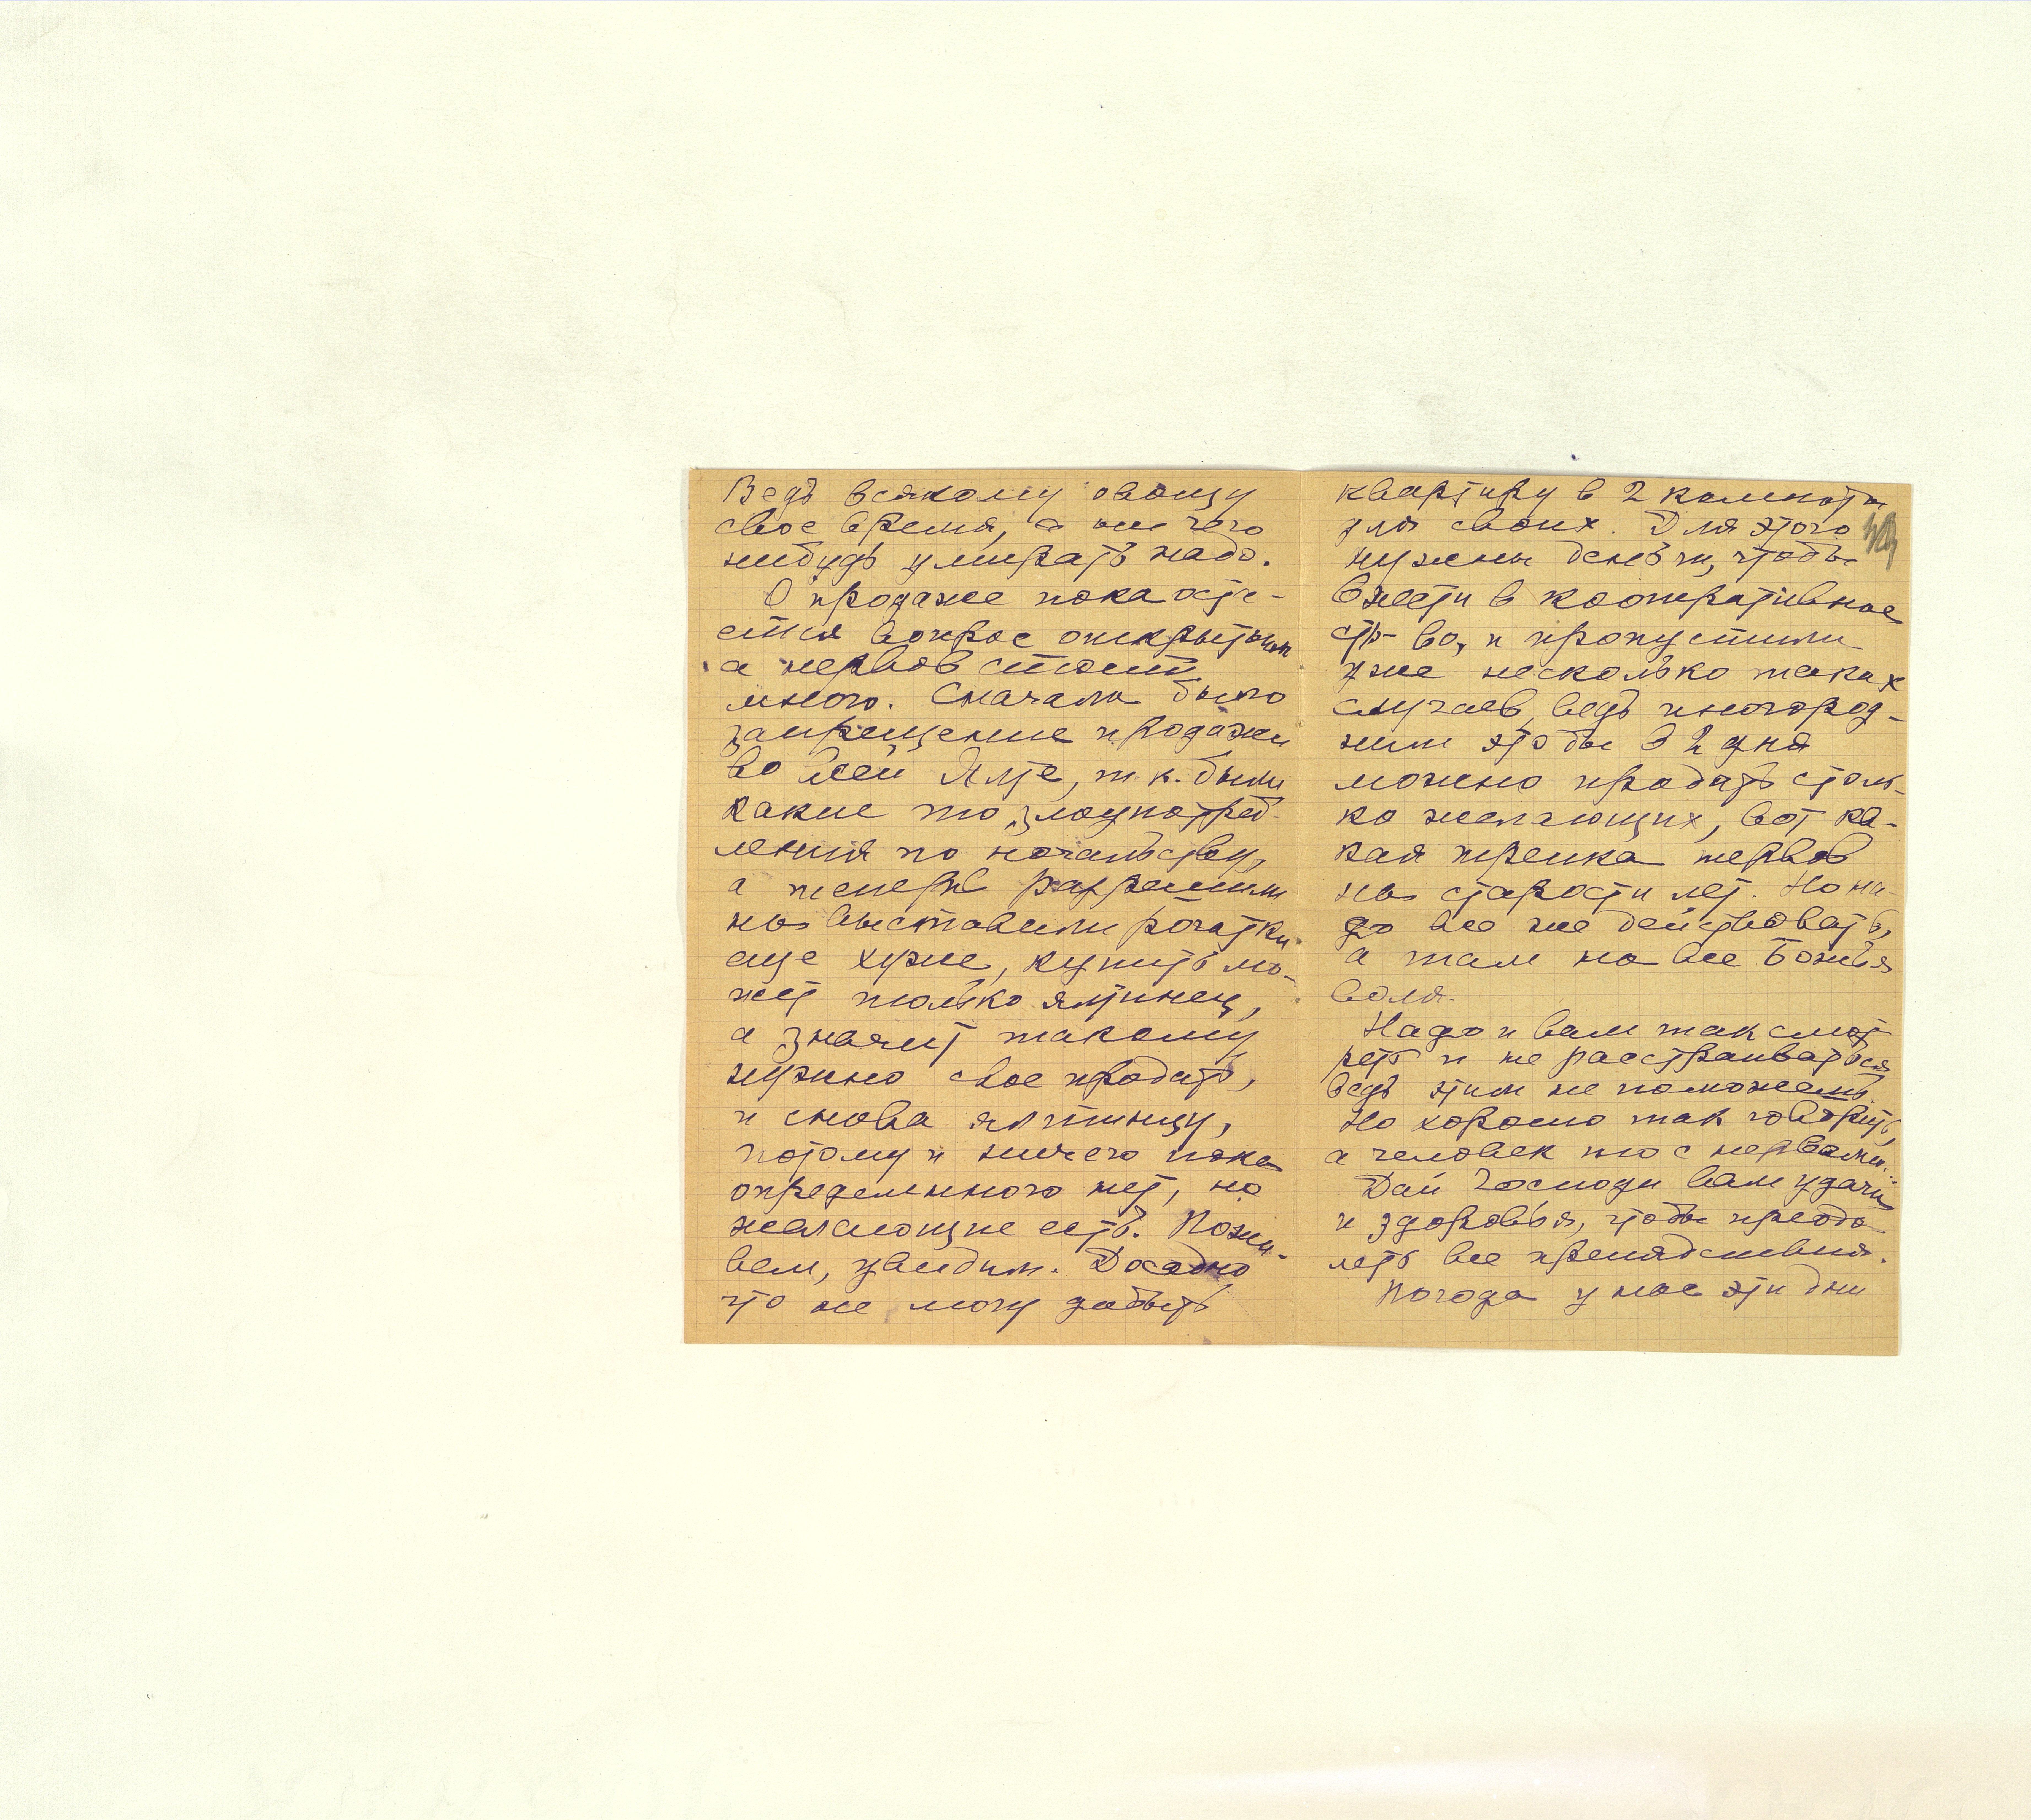 Ведь всякому овощу
свое время, а от чего
нибудь умирать надо.
О продаже пока оста-
ется вопрос открытым
а нервов стоит
много. Сначала было
запрещение продажи
во всей Ялте, т.к. были
какие то злоупотреб-
ления по начальству,
а теперь разрешили
но выставили рогатки
еще хуже, купить мо-
жет только ялтинец,
а значит такому
нужно свое продать,
и снова ялтинцу,
потому и ничего пока
определенного нет, но
желающие есть. Пожи-
вем, увидим. Досадно
что не могу добыть
квартиру в 2 комнаты
для своих. Для этого
нужны деньги, чтобы
внести в кооперативное
ст-во, и пропустили
уже несколько таких
случаев, ведь иногород-
ним это бы в 2 дня
можно продать столь-
ко желающих, вот ка-
кая трепка нервов
на старости лет. Но на-
до все же действовать,
а там на все Божья
воля.
Надо и вам так смот
реть и не расстраиваться
ведь этим не поможешь.
Но хорошо так говорить,
а человек то с нервами..
Дай Господи вам удачи
и здоровья, чтобы преодо
леть все препядствия.
Погода у нас эти дни